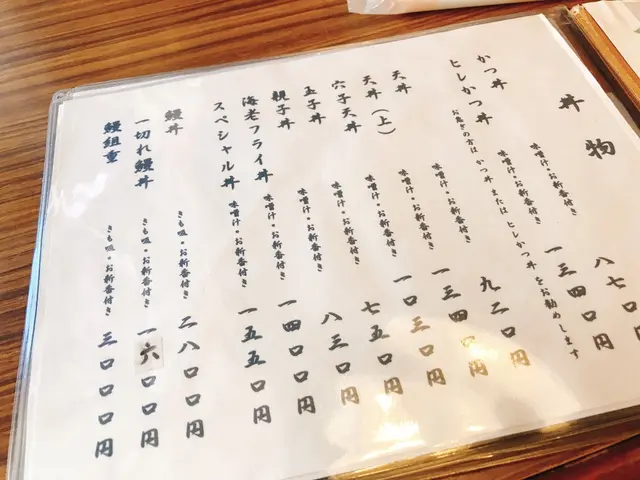 丼物
かつ丼 味噌汁・お新香付き 八七〇円
ヒレかつ丼 味噌汁・お新香付き 一三四〇円
お急ぎの方は かつ丼 または ヒレかつ丼 をお勧めします
天丼 味噌汁・お新香付き 九二〇円
天丼(上) 味噌汁・お新香付き 一三四〇円
穴子天丼 味噌汁・お新香付き 一〇三〇円
玉子丼 味噌汁・お新香付き 七五〇円
親子丼 味噌汁・お新香付き 八三〇円
海老フライ丼 味噌汁・お新香付き 一四〇〇円
スペシャル丼 味噌汁・お新香付き 一五五〇円
鰻丼 きも吸・お新香付き 二八〇〇円
一切れ鰻丼 きも吸・お新香付き 一六〇〇円
鰻組重 きも吸・お新香付き 三〇〇〇円